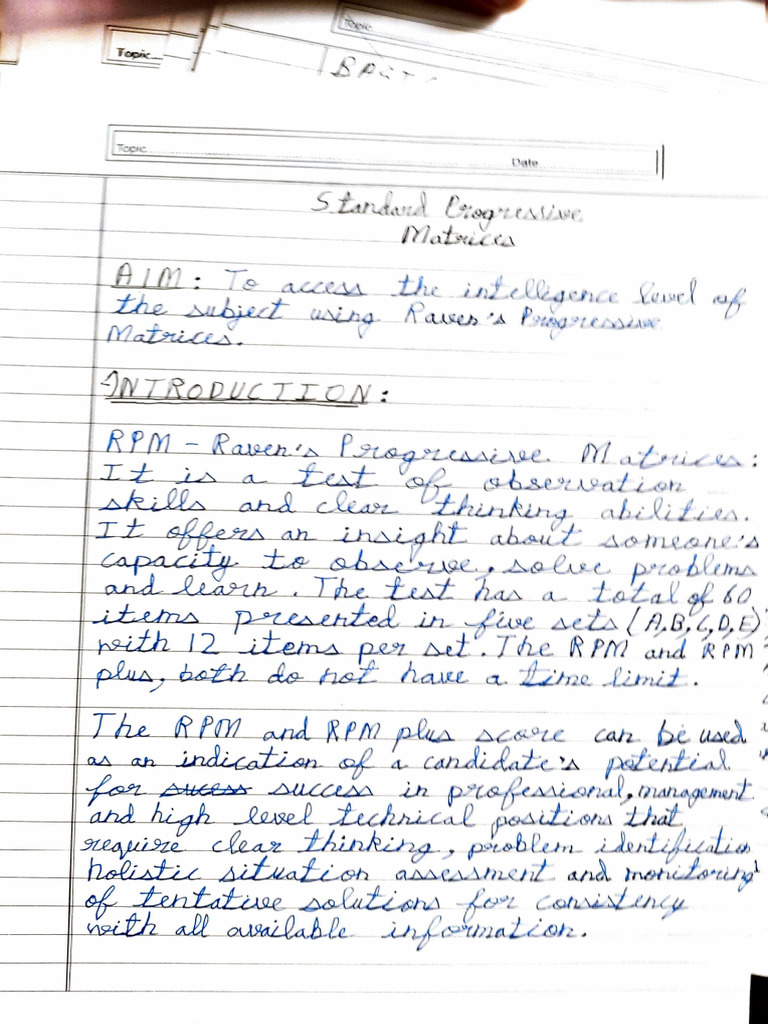 Topic
Topic
Topic
Date
Standard Progressive
Matrices
AIM: To access the intelligence level of
the subject using Raven's Progressive
Matrices.
INTRODUCTION:
RPM - Raven's Progressive Matrices:
It is a test of observation
skills and clear thinking abilities.
It offers an insight about someone's
capacity to observe, solve problems
and learn. The test has a total of 60
items presented in five sets (A,B,C,D,E),
with 12 items per set. The RPM and RPM
plus, both do not have a time limit.
The RPM and RPM plus score can be used
as an indication of a candidate's potential
for sucess success in professional, management
and high level technical positions that
require clear thinking, problem identification
holistic situation assessment and monitoring
of tentative solutions for consistency
with all available information.